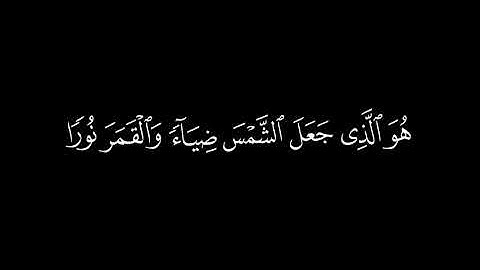 هُوَ ٱلَّذِى جَعَلَ ٱلشَّمْسَ ضِيَآءً وَٱلْقَمَرَ نُورًا